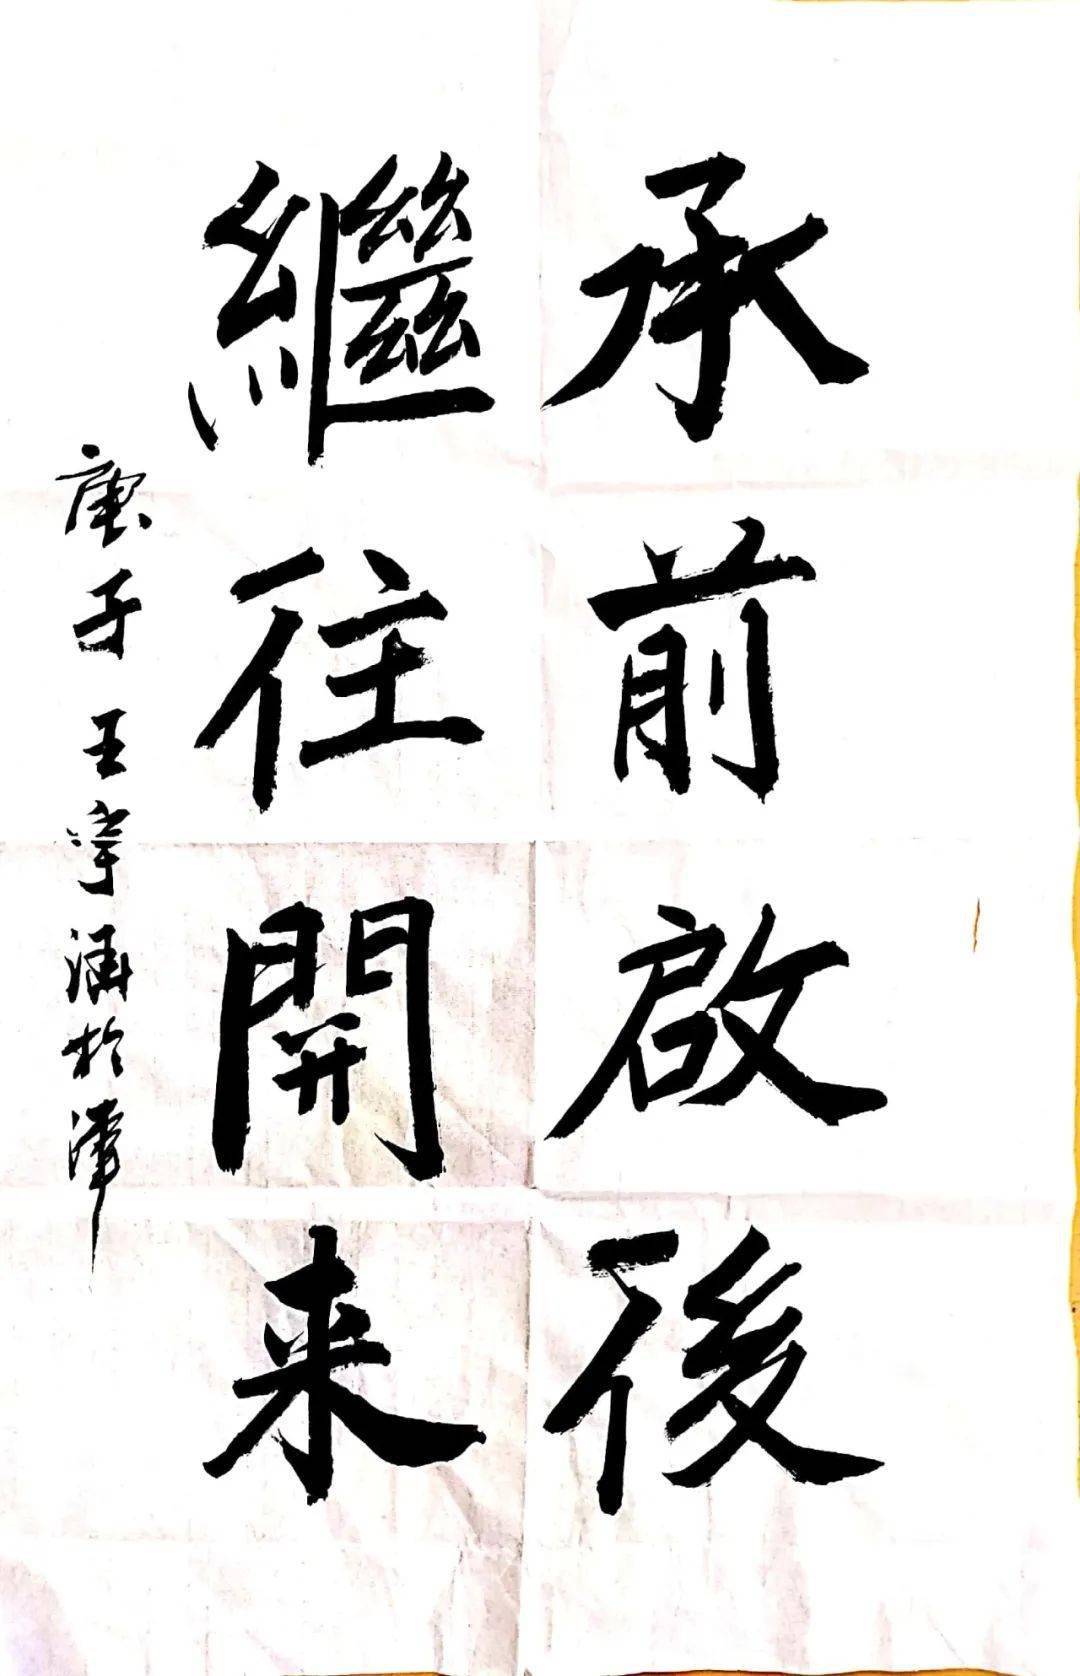 承前啟後
繼往開来
庚子王宇涵於津